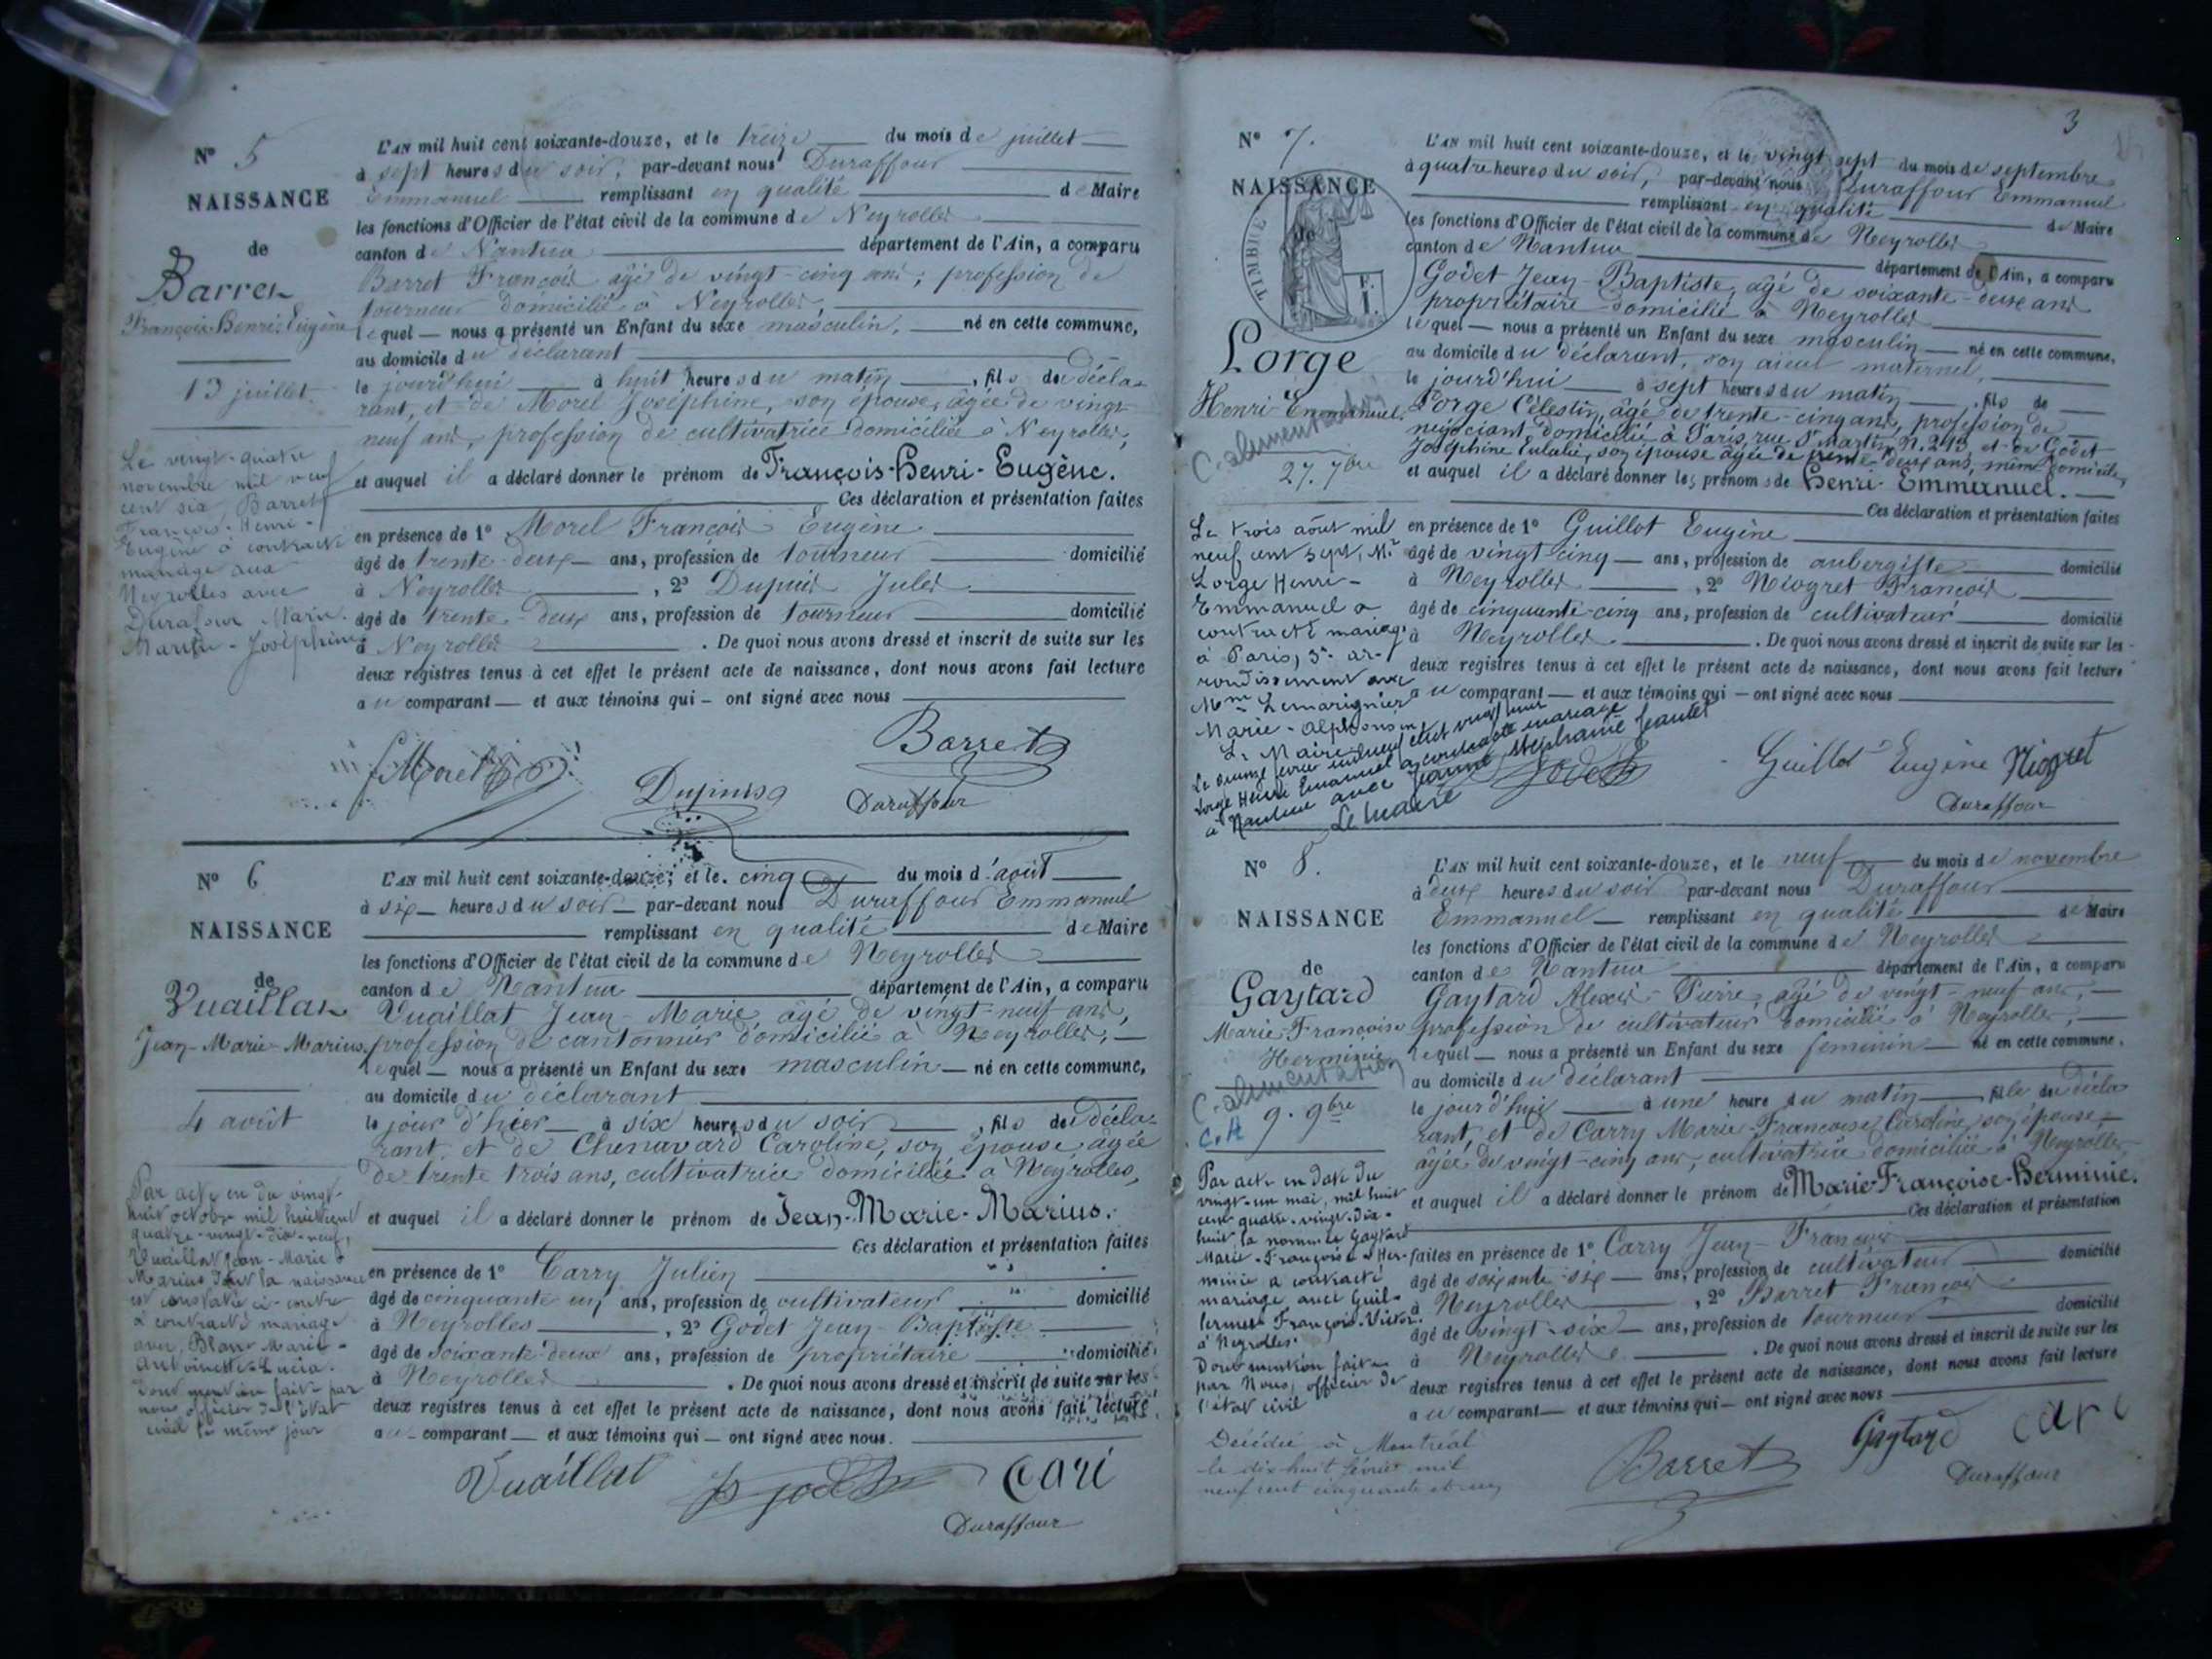 N° 5
NAISSANCE
de
Barret
François-Henri-Eugène
13 juillet.
Le vingt-quatre
novembre mil neuf
cent six, Barret
François-Henri-
Eugène a contracté
mariage aux
Neyrolles avec
Duraffour Marie
Marthe-Joséphine
L'AN mil huit cent soixante-douze, et le treize du mois de juillet
à sept heures du soir, par-devant nous Duraffour
Emmanuel remplissant en qualité de Maire
les fonctions d'Officier de l'état civil de la commune de Neyrolles
canton de Nantua département de l'Ain, a comparu
Barret François âgé de vingt-cinq ans, profession de
tourneur domicilié à Neyrolles,
lequel nous a présenté un Enfant du sexe masculin, né en cette commune,
au domicile du déclarant
le jourd'hui à huit heures du matin, fils du décla-
rant, et de Morel Joséphine, son épouse, âgée de vingt-
neuf ans, profession de cultivatrice domiciliée à Neyrolles,
et auquel il a déclaré donner le prénom de François-Henri-Eugène.
Ces déclaration et présentation faites
en présence de 1° Morel François Eugène
âgé de trente-deux ans, profession de tourneur domicilié
à Neyrolles, 2° Dupuis Jules
âgé de trente-deux ans, profession de tourneur domicilié
à Neyrolles. De quoi nous avons dressé et inscrit de suite sur les
deux registres tenus à cet effet le présent acte de naissance, dont nous avons fait lecture
au comparant et aux témoins qui ont signé avec nous
Morel Dupuis Barret
Duraffour
N° 6
NAISSANCE
de
Vuaillat
Jean-Marie-Marius
4 août
Par acte en du vingt-
huit octobre mil huit cent
quatre-vingt-dix-neuf,
Vuaillat Jean-Marie
Marius dont la naissance
est constatée ci-contre
a contracté mariage
avec Blanc Marie-
Antoinette-Lucia.
Dont mention faite par
nous officier de l'état
civil le même jour
L'AN mil huit cent soixante-douze, et le cinq du mois d'août
à six heures du soir par-devant nous Duraffour Emmanuel
remplissant en qualité de Maire
les fonctions d'Officier de l'état civil de la commune de Neyrolles
canton de Nantua département de l'Ain, a comparu
Vuaillat Jean-Marie âgé de vingt-neuf ans,
profession de cantonnier domicilié à Neyrolles,
lequel nous a présenté un Enfant du sexe masculin né en cette commune,
au domicile du déclarant
le jour d'hier à six heures du soir, fils du décla-
rant, et de Chenavard Caroline, son épouse âgée
de trente trois ans, cultivatrice domiciliée à Neyrolles,
et auquel il a déclaré donner le prénom de Jean-Marie-Marius.
Ces déclaration et présentation faites
en présence de 1° Carry Julien
âgé de cinquante un ans, profession de cultivateur domicilié
à Neyrolles, 2° Godet Jean-Baptiste
âgé de soixante deux ans, profession de propriétaire domicilié
à Neyrolles. De quoi nous avons dressé et inscrit de suite sur les
deux registres tenus à cet effet le présent acte de naissance, dont nous avons fait lecture
au comparant et aux témoins qui ont signé avec nous.
Vuaillat godet Cari
Duraffour
3
N° 7.
NAISSANCE
de
TIMBRE
Lorge
Henri Emmanuel
C. alimentation
27. 7bre
Le trois août mil
neuf cent sept, Mr
Lorge Henri-
Emmanuel a
contracté mariage
à Paris, 3e ar-
rondissement avec
Mme Lemarignier
Marie-Alphonsine
Le Maire
Lorge Henri Emmanuel a contracté mariage
à Nantua avec Jeanne Stéphanie
Le Maire
L'AN mil huit cent soixante-douze, et le vingt sept du mois de septembre
à quatre heures du soir, par-devant nous Duraffour Emmanuel
remplissant en qualité de Maire
les fonctions d'Officier de l'état civil de la commune de Neyrolles
canton de Nantua département de l'Ain, a comparu
Godet Jean-Baptiste, âgé de soixante-deux ans
propriétaire domicilié à Neyrolles
lequel nous a présenté un Enfant du sexe masculin né en cette commune,
au domicile du déclarant, son aïeul maternel,
le jourd'hui à sept heures du matin, fils de
Lorge Célestin, âgé de trente-cinq ans, profession de
négociant domicilié à Paris, rue St Martin, N. 213, et de Godet
Joséphine Eulalie, son épouse âgée de trente-deux ans, même domicile,
et auquel il a déclaré donner les prénoms de Henri-Emmanuel.
Ces déclaration et présentation faites
en présence de 1° Guillot Eugène
âgé de vingt cinq ans, profession de aubergiste domicilié
à Neyrolles, 2° Niogret François
âgé de cinquante-cinq ans, profession de cultivateur domicilié
à Neyrolles. De quoi nous avons dressé et inscrit de suite sur les
deux registres tenus à cet effet le présent acte de naissance, dont nous avons fait lecture
au comparant et aux témoins qui ont signé avec nous
godet Guillot Eugène Niogret
Duraffour
N° 8.
NAISSANCE
de
Gaytard
Marie-Françoise
Herminie
C. alimentation
C.A 9. 9bre
Par acte en date du
vingt-un mai, mil huit
cent quatre-vingt-dix-
huit, la nommée Gaytard
Marie-Françoise-Her-
minie a contracté
mariage avec Guil-
lermet François-Victor
à Neyrolles.
Dont mention faite
par Nous, officier de
l'état civil
Décédée à Montréal
le dix huit février mil
neuf cent cinquante et un
L'AN mil huit cent soixante-douze, et le neuf du mois de novembre
à deux heures du soir par-devant nous Duraffour
Emmanuel remplissant en qualité de Maire
les fonctions d'Officier de l'état civil de la commune de Neyrolles
canton de Nantua département de l'Ain, a comparu
Gaytard Alexis-Pierre, âgé de vingt-neuf ans,
profession de cultivateur domicilié à Neyrolles,
lequel nous a présenté un Enfant du sexe féminin né en cette commune.
au domicile du déclarant
le jourd'hui à une heure du matin, fille du décla
rant, et de Carry Marie-Françoise Caroline, son épouse,
âgée de vingt-cinq ans, cultivatrice domiciliée à Neyrolles,
et auquel il a déclaré donner le prénom de Marie-Françoise-Herminie.
Ces déclaration et présentation
faites en présence de 1° Carry Jean-François
âgé de soixante-six ans, profession de cultivateur domicilié
à Neyrolles, 2° Barret François
âgé de vingt-six ans, profession de tourneur domicilié
à Neyrolles. De quoi nous avons dressé et inscrit de suite sur les
deux registres tenus à cet effet le présent acte de naissance, dont nous avons fait lecture
au comparant et aux témoins qui ont signé avec nous
Barret Gaytard Cari
Duraffour